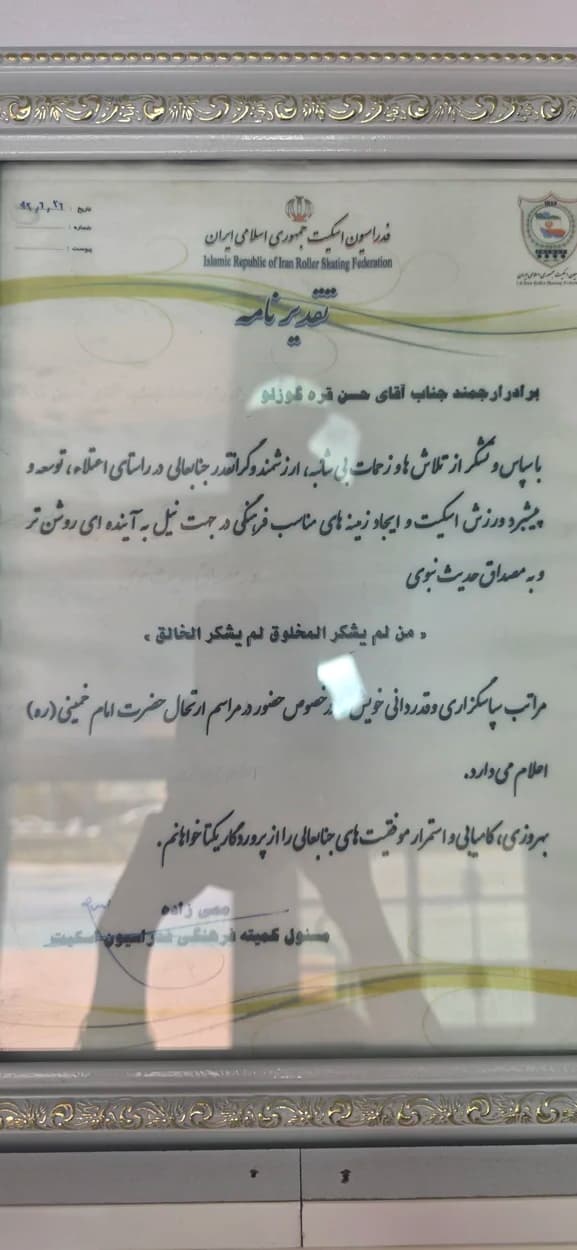 تاریخ :
شماره :
پیوست :
فدراسیون اسکیت جمهوری اسلامی ایران
Islamic Republic of Iran Roller Skating Federation
تقدیرنامه
برادر ارجمند جناب آقای حسن قره گوزلو
با سپاس و تشکر از تلاش ها و زحمات بی شائبه، ارزشمند و گرانقدر جنابعالی در راستای اعتلاء، توسعه و
پیشبرد ورزش اسکیت و ایجاد زمینه های مناسب فرهنگی در جهت نیل به آینده ای روشن تر
و به مصداق حدیث نبوی
« من لم یشکر المخلوق لم یشکر الخالق »
مراتب سپاسگزاری و قدردانی خویش در خصوص حضور در مراسم ارتحال حضرت امام خمینی (ره)
اعلام می دارد.
بهروزی، کامیابی و استمرار موفقیت های جنابعالی را از پروردگار یکتا خواهانم.
مسئول کمیته فرهنگی فدراسیون اسکیت